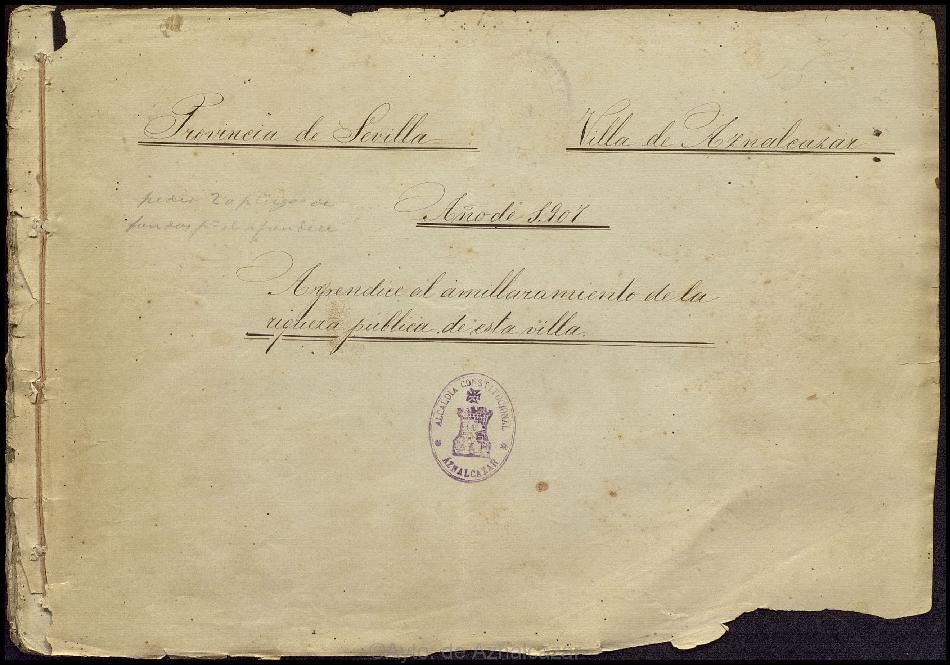 Provincia de Sevilla
Villa de Aznalcazar
Año de 1.907
Apendice al amillaramiento de la
riqueza publica de esta villa.
pedir pliegos de
ALCALDIA CONSTITUCIONAL
AZNALCAZAR
©Ayto. de Aznalcázar